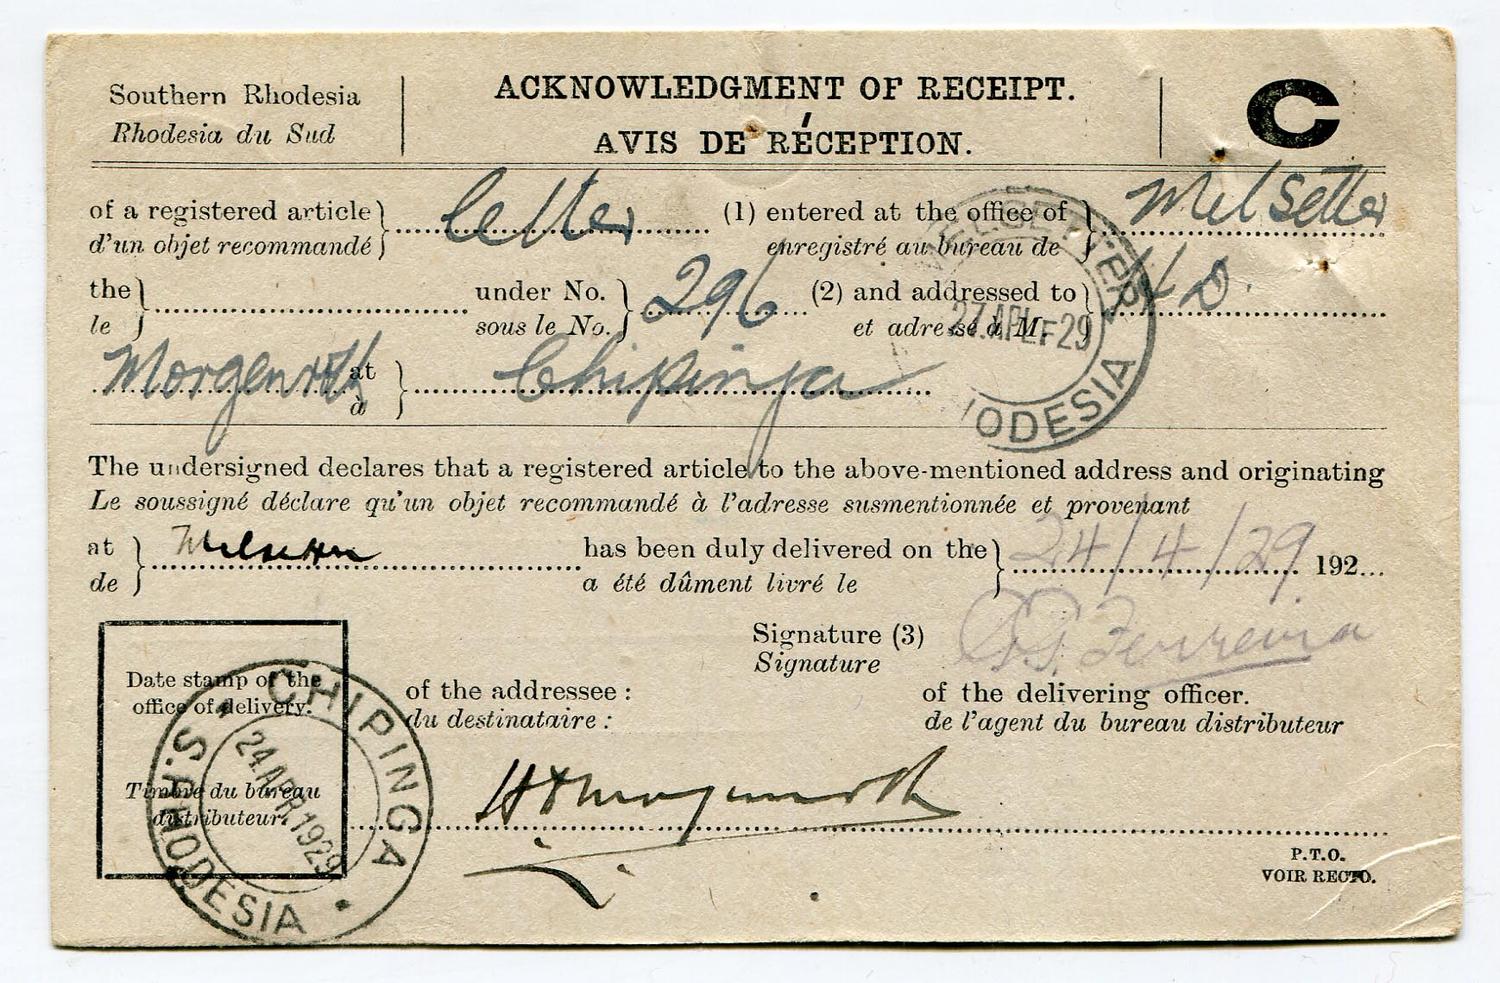 Southern Rhodesia
Rhodesia du Sud
ACKNOWLEDGMENT OF RECEIPT.
AVIS DE RÉCEPTION.
C
of a registered article } letter (1) entered at the office of } Melsetter
d'un objet recommandé enregistré au bureau de
the } under No. } 296 (2) and addressed to } H D.
le sous le No. et adressé à M.
Morgenroth at } Chipinga
à
MELSETTER
27.APL.F29
RHODESIA
The undersigned declares that a registered article to the above-mentioned address and originating
Le soussigné déclare qu'un objet recommandé à l'adresse susmentionnée et provenant
at } Melsetter has been duly delivered on the } 24/4/29 192...
de a été dûment livré le
Signature (3) Ferreira
Signature
Date stamp of the
office of delivery.
of the addressee :
du destinataire :
of the delivering officer.
de l'agent du bureau distributeur
Timbre du bureau
distributeur.
CHIPINGA
24 APR 1929
S. RHODESIA
H D Morgenroth
P.T.O.
VOIR RECTO.